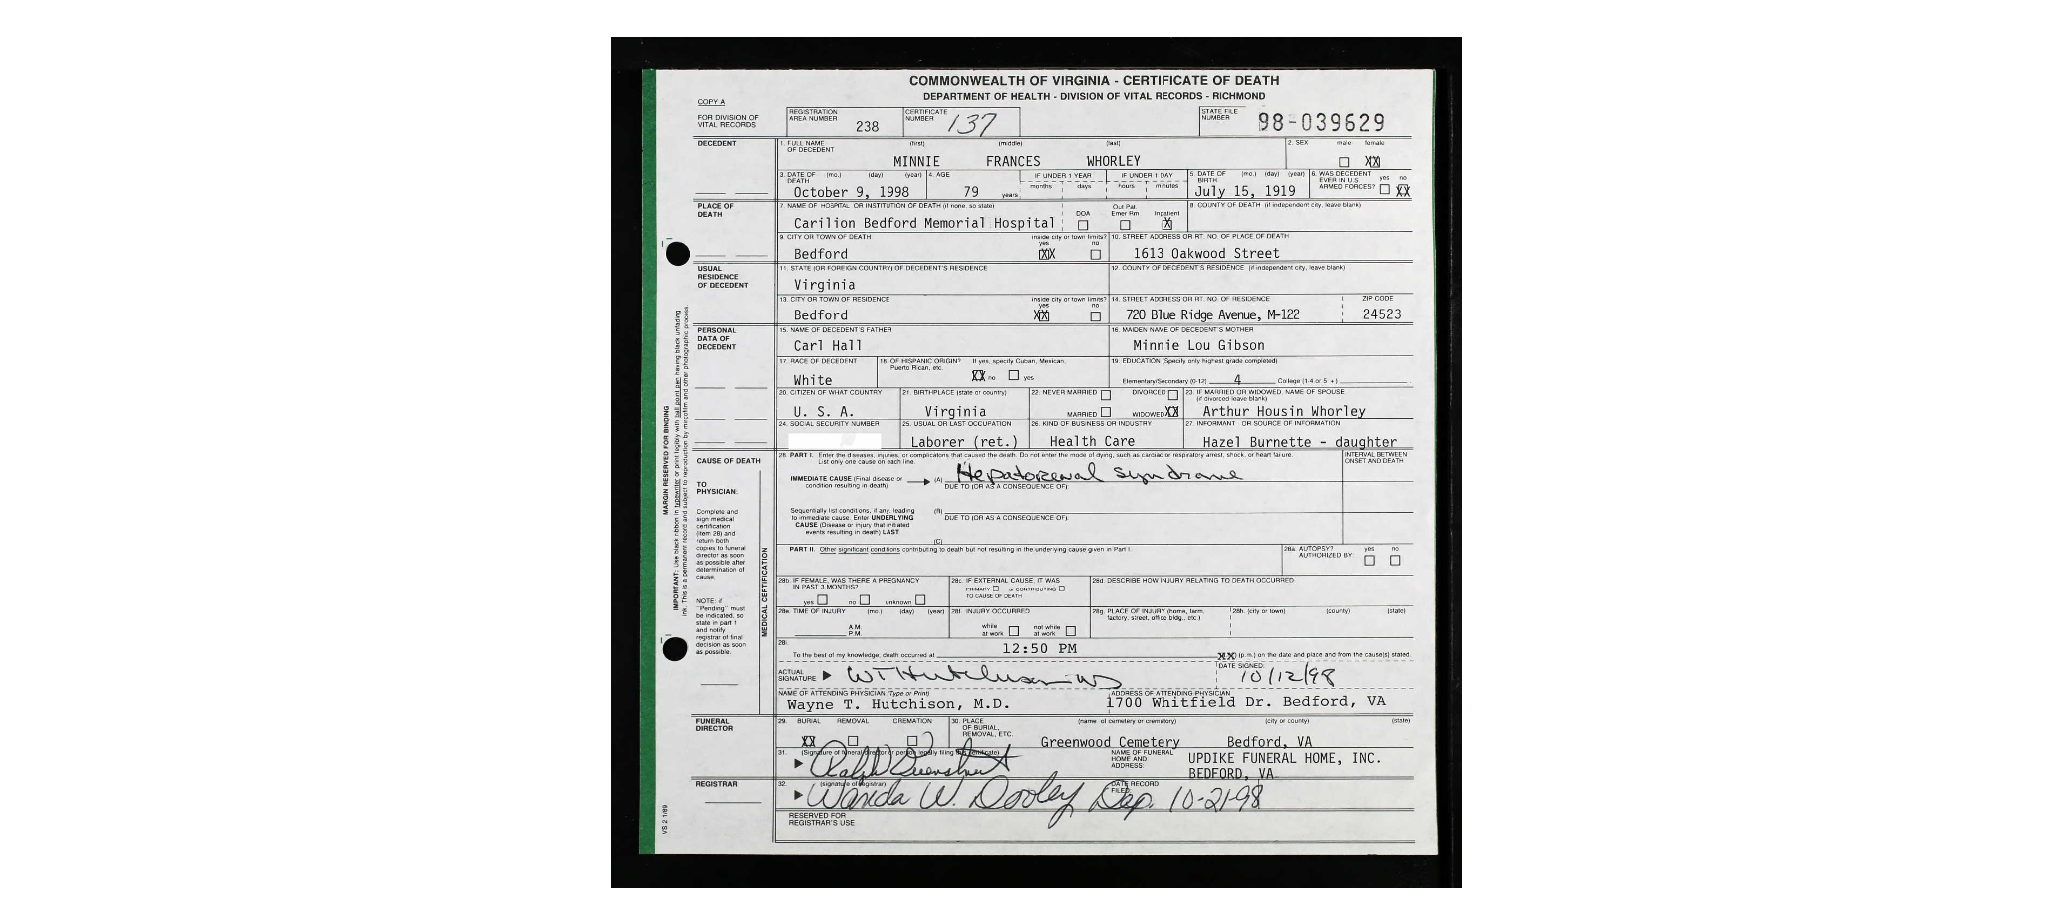 COMMONWEALTH OF VIRGINIA - CERTIFICATE OF DEATH
DEPARTMENT OF HEALTH - DIVISION OF VITAL RECORDS - RICHMOND
COPY A
FOR DIVISION OF VITAL RECORDS
REGISTRATION AREA NUMBER 238
CERTIFICATE NUMBER 137
STATE FILE NUMBER 98-039629
DECEDENT
1. FULL NAME OF DECEDENT (first) (middle) (last)
MINNIE FRANCES WHORLEY
2. SEX male female XX
3. DATE OF DEATH (mo.) (day) (year) October 9, 1998
4. AGE 79 years
IF UNDER 1 YEAR months days
IF UNDER 1 DAY hours minutes
5. DATE OF BIRTH (mo.) (day) (year) July 15, 1919
6. WAS DECEDENT EVER IN U.S. ARMED FORCES? yes no XX
PLACE OF DEATH
7. NAME OF HOSPITAL OR INSTITUTION OF DEATH (if none, so state)
Carilion Bedford Memorial Hospital
DOA Out Pat. Emer Rm Inpatient X
8. COUNTY OF DEATH (if independent city, leave blank)
9. CITY OR TOWN OF DEATH Bedford
inside city or town limits? yes XX no
10. STREET ADDRESS OR RT. NO. OF PLACE OF DEATH
1613 Oakwood Street
USUAL RESIDENCE OF DECEDENT
11. STATE (OR FOREIGN COUNTRY) OF DECEDENT'S RESIDENCE
Virginia
12. COUNTY OF DECEDENT'S RESIDENCE (if independent city, leave blank)
13. CITY OR TOWN OF RESIDENCE Bedford
inside city or town limits? yes XX no
14. STREET ADDRESS OR RT. NO. OF RESIDENCE
720 Blue Ridge Avenue, M-122
ZIP CODE 24523
PERSONAL DATA OF DECEDENT
15. NAME OF DECEDENT'S FATHER
Carl Hall
16. MAIDEN NAME OF DECEDENT'S MOTHER
Minnie Lou Gibson
17. RACE OF DECEDENT White
18. OF HISPANIC ORIGIN? If yes, specify Cuban, Mexican, Puerto Rican, etc.
XX no yes
19. EDUCATION (Specify only highest grade completed)
Elementary/Secondary (0-12) 4 College (1-4 or 5 +)
20. CITIZEN OF WHAT COUNTRY U. S. A.
21. BIRTHPLACE (state or country) Virginia
22. NEVER MARRIED DIVORCED
MARRIED WIDOWED XX
23. IF MARRIED OR WIDOWED, NAME OF SPOUSE (if divorced leave blank)
Arthur Housin Whorley
24. SOCIAL SECURITY NUMBER
25. USUAL OR LAST OCCUPATION Laborer (ret.)
26. KIND OF BUSINESS OR INDUSTRY Health Care
27. INFORMANT OR SOURCE OF INFORMATION
Hazel Burnette - daughter
CAUSE OF DEATH
TO PHYSICIAN:
Complete and sign medical certification (item 28) and return both copies to funeral director as soon as possible after determination of cause.
NOTE: if "Pending" must be indicated, so state in part 1 and notify registrar of final decision as soon as possible.
MARGIN RESERVED FOR BINDING
IMPORTANT: Use black ribbon in typewriter or print legibly with ball point pen having black unfading
ink. This is a permanent record and subject to reproduction by microfilm and other photographic process.
MEDICAL CERTIFICATION
28. PART I. Enter the diseases, injuries, or complications that caused the death. Do not enter the mode of dying, such as cardiac or respiratory arrest, shock, or heart failure.
List only one cause on each line.
INTERVAL BETWEEN ONSET AND DEATH
IMMEDIATE CAUSE (Final disease or condition resulting in death)
(A) Hepatorenal syndrome
DUE TO (OR AS A CONSEQUENCE OF):
Sequentially list conditions, if any, leading to immediate cause. Enter UNDERLYING CAUSE (Disease or injury that initiated events resulting in death) LAST
(B)
DUE TO (OR AS A CONSEQUENCE OF):
(C)
PART II. Other significant conditions contributing to death but not resulting in the underlying cause given in Part I.
28a. AUTOPSY? AUTHORIZED BY yes no
28b. IF FEMALE, WAS THERE A PREGNANCY IN PAST 3 MONTHS?
yes no unknown
28c. IF EXTERNAL CAUSE, IT WAS
PRIMARY or CONTRIBUTING
TO CAUSE OF DEATH
28d. DESCRIBE HOW INJURY RELATING TO DEATH OCCURRED
28e. TIME OF INJURY (mo.) (day) (year)
A.M.
P.M.
28f. INJURY OCCURRED
while at work not while at work
28g. PLACE OF INJURY (home, farm, factory, street, office bldg., etc.)
28h. (city or town) (county) (state)
28i.
To the best of my knowledge, death occurred at 12:50 PM XX (p.m.) on the date and place and from the cause(s) stated.
ACTUAL SIGNATURE WT Hutchison MD
DATE SIGNED: 10/12/98
NAME OF ATTENDING PHYSICIAN (Type or Print)
Wayne T. Hutchison, M.D.
ADDRESS OF ATTENDING PHYSICIAN
1700 Whitfield Dr. Bedford, VA
FUNERAL DIRECTOR
29. BURIAL REMOVAL CREMATION
XX
30. PLACE OF BURIAL, REMOVAL, ETC. (name of cemetery or crematory) (city or county) (state)
Greenwood Cemetery Bedford, VA
31. (Signature of funeral director or person legally filing this certificate)
Ralph
NAME OF FUNERAL HOME AND ADDRESS:
UPDIKE FUNERAL HOME, INC.
BEDFORD, VA
REGISTRAR
32. (signature of registrar)
Wanda W. Dooley Dep.
DATE RECORD FILED: 10-21-98
RESERVED FOR REGISTRAR'S USE
VS 2 1/89